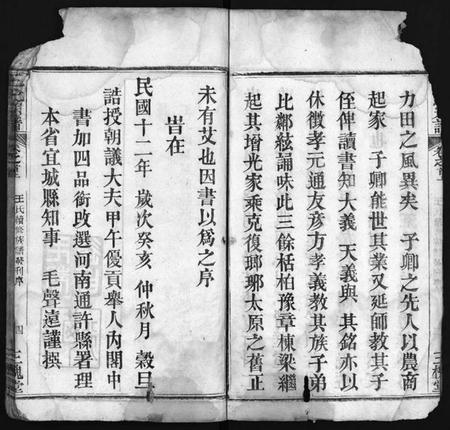 力田之風異矣 子卿之先人以農商
起家也 子卿能世其業又延師教其子
侄俾讀書知大義 天義與 其銘亦以
休徵孝元通友彥方孝義教其族子弟
比鄰絃誦味此三餘栝柏豫章棟梁繼
起其增光家乘克復瑯琊太原之舊正
未有艾也因書以為之序
旹在
民國十二年 歲次癸亥 仲秋月 穀旦
誥授朝議大夫甲午優貢舉人內閣中
書加四品銜改選河南通許縣署理
本省宜城縣知事 毛聲遠謹撰
王氏續修族譜發刊序 四
三槐堂
三槐堂